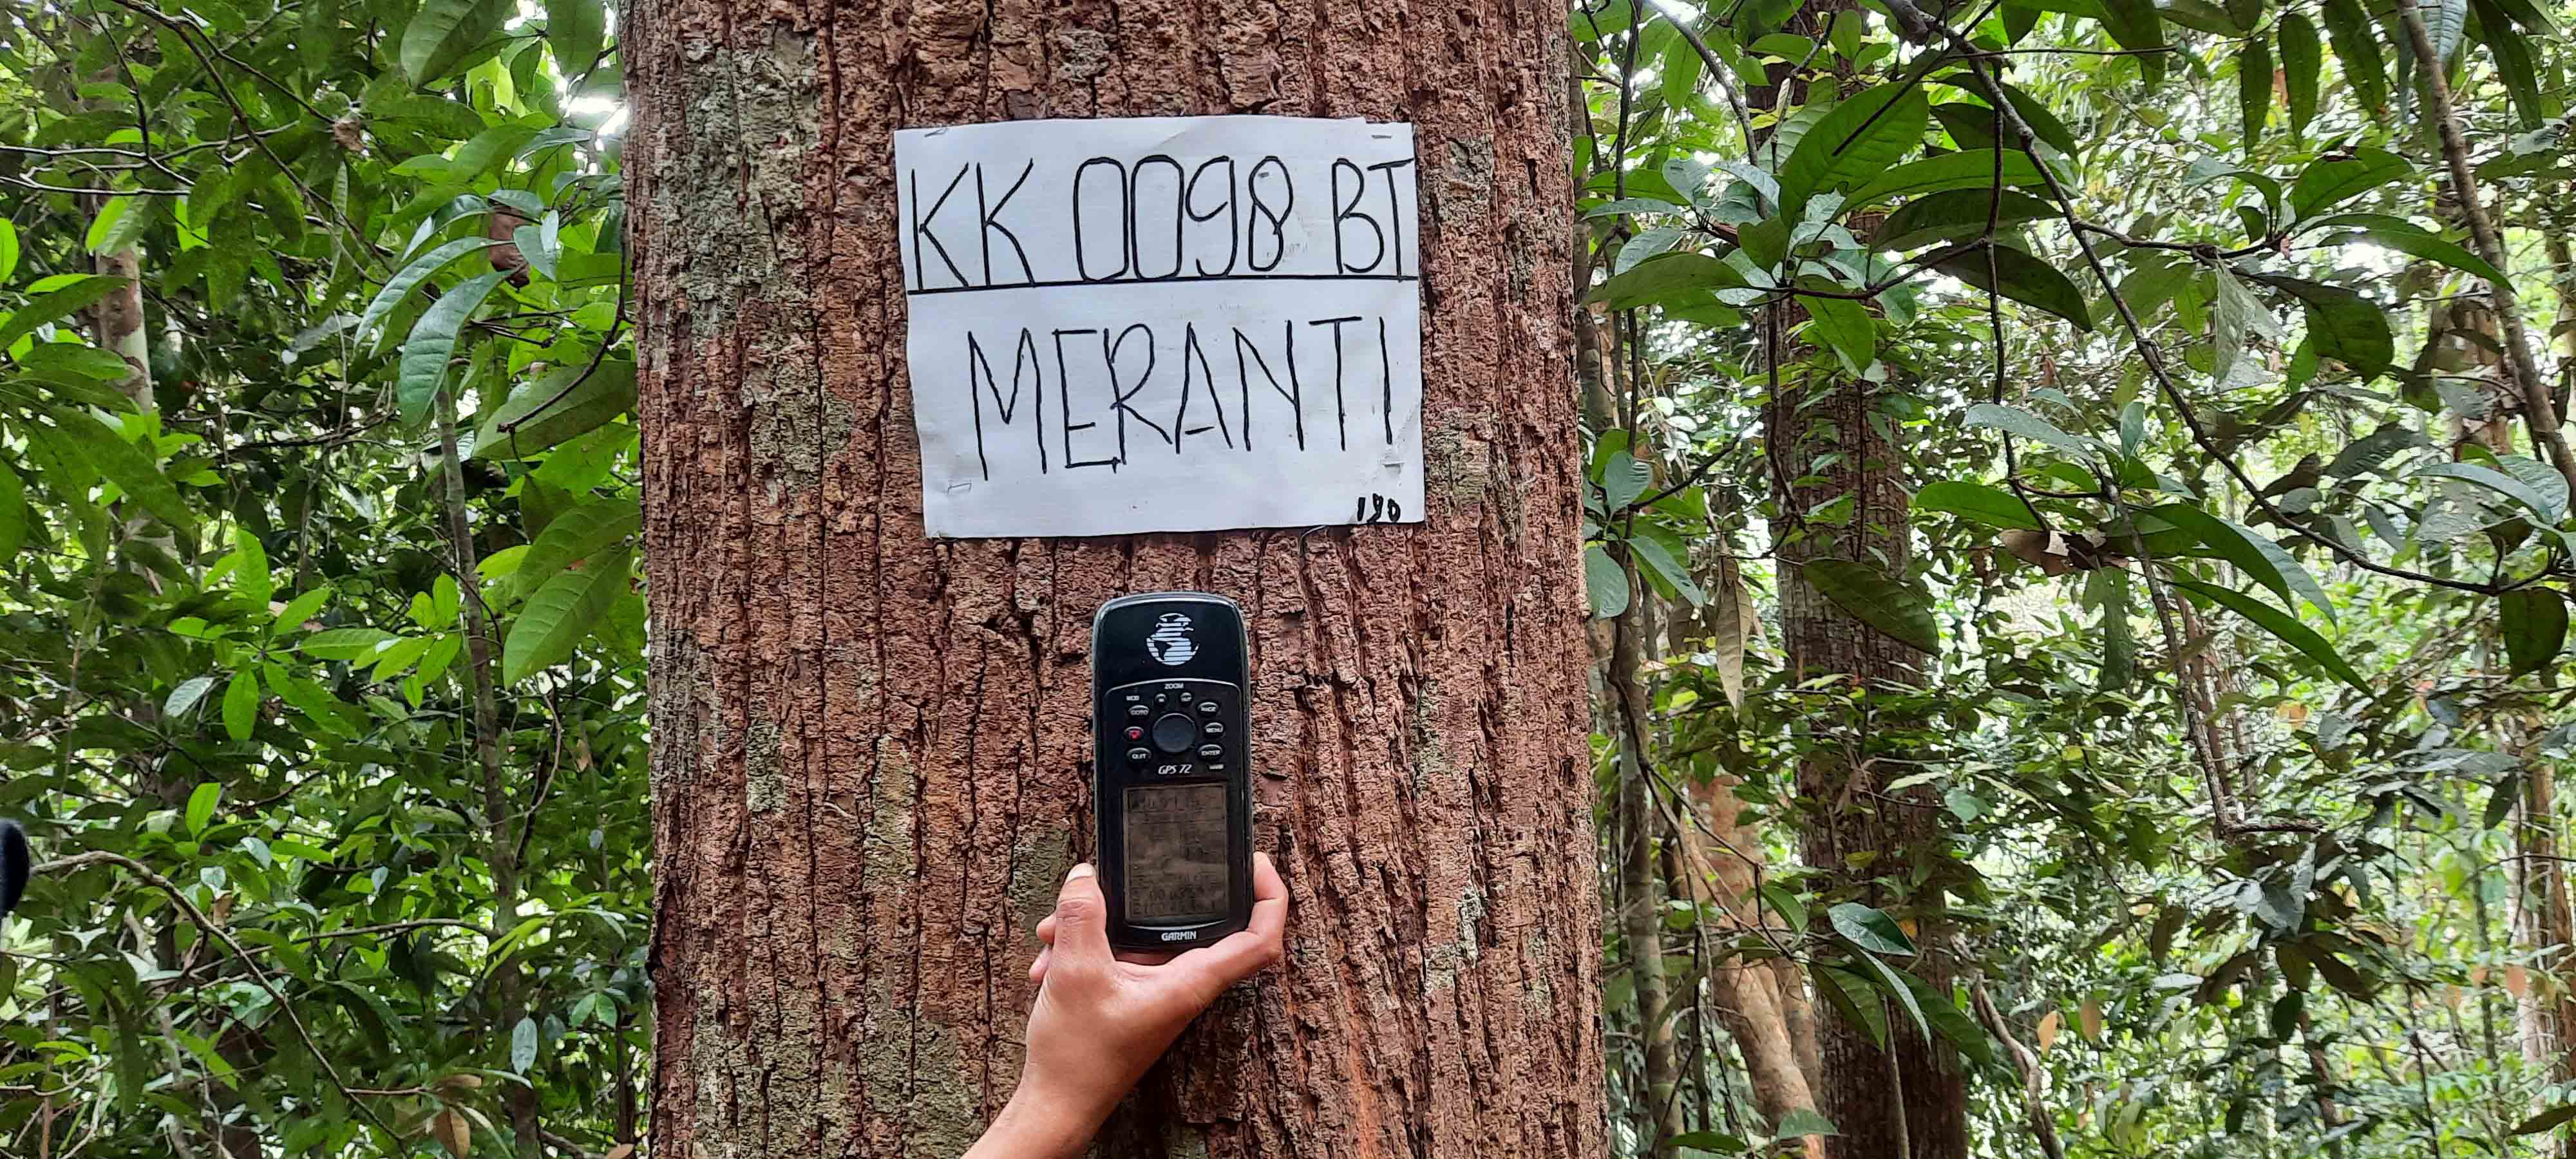 KK 0098 BT
MERANTI
190
ZOOM
GOTO
PAGE
MENU
QUIT
ENTER
GPS 72
GARMIN